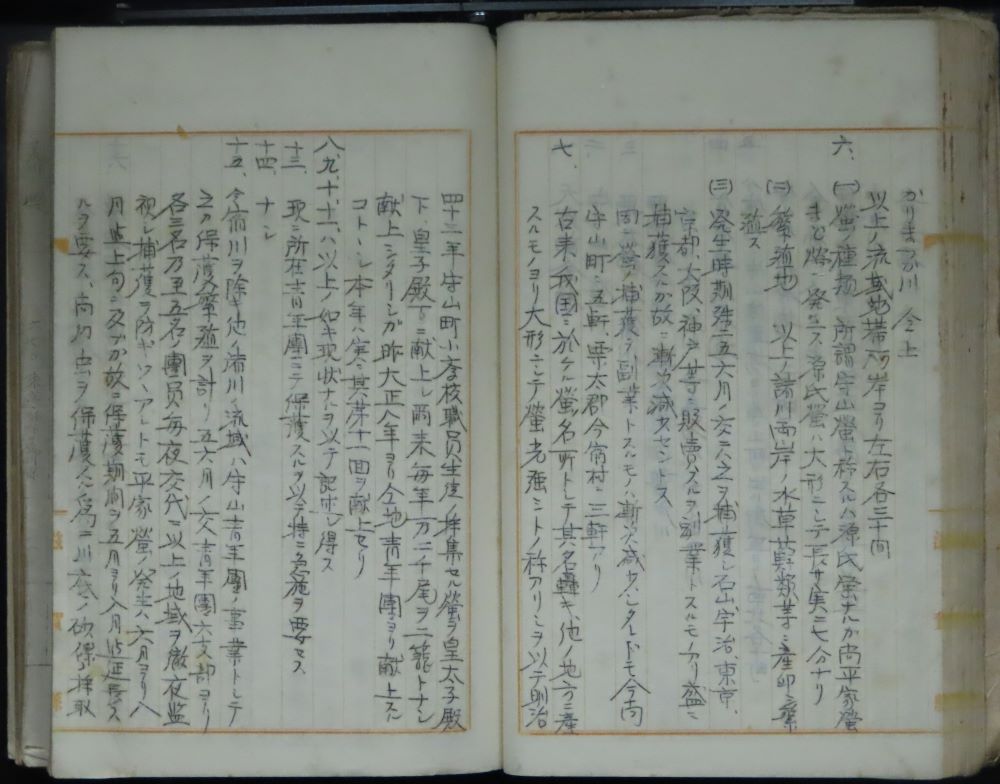 かりまた川 仝上
以上ノ流域地帯河岸ヨリ左右各三十間
六、(一) 螢ノ種類 所謂守山螢ト称スルハ源氏螢ナルカ尚平家螢
モ略発生ス源氏螢ハ大形ニシテ長サ実ニ七分ナリ
(二) 繁殖地 以上ノ諸川両岸ノ水草苔類等ニ産卵シ繁
殖ス
(三) 発生時期 五六月ノ交ニ之ヲ捕獲シ石山、宇治、東京、
京都、大阪、神戸等ニ販売スルヲ副業トスルモノアリ盛ニ
捕獲スルガ故ニ漸次減少セントス
同シ螢ノ捕獲ヲ副業トスルモノハ漸次減少シタレドモ今尚
守山町ニ五軒、栗太郡今宿村ニ三軒アリ
七、古来我国ニ於ケル螢ノ名所トシテ其名轟キ、他ノ地方ニ産
スルモノヨリ大形ニシテ螢光強シトノ称アリシヲ以テ明治
四十二年守山町小学校職員生徒ノ採集セル螢ヲ皇太子殿
下、皇子殿下ニ献上シ爾来毎年万二千尾ヲ一籠トナシ
献上シタリシガ昨大正八年ヨリ仝地青年団ヨリ献上スル
コトトシ本年ハ実ニ其第十一回ヲ献上セリ
八、九、十、十一、ハ以上ノ如キ現状ナルヲ以テ記述シ得ス
十三、現ニ所在青年團ニテ保護スルヲ以テ特ニ実施ヲ要セス
十四、ナシ
十五、今宿川ヲ除キ他ノ諸川ノ流域ハ守山青年團ノ事業トシテ
之カ保護繁殖ヲ計リ五六月ノ交青年團六支部ヨリ
各三名乃至五名ノ團員毎夜交代ニ以上ノ地域ヲ徹夜監
視シ捕獲ヲ防ギツツアレトモ平家螢ノ発生ハ六月ヨリ八
月上旬ニ及ブガ故ニ保護期間ヲ五月ヨリ八月迄延長ス
ルヲ要ス、尚幼虫ヲ保護スル為ニ川底ノ砂礫採取